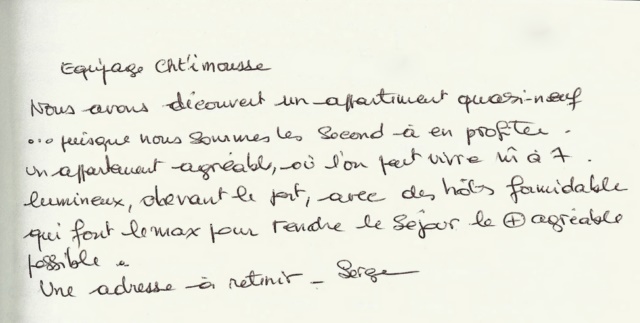 Equipage Cht'imousse
Nous avons découvert un appartiment quasi-neuf
... puisque nous sommes les second à en profiter.
un appartement agréable, où l'on peut vivre à 7.
lumineux, devant le port, avec des hôts formidable
qui font le max pour rendre le séjour le ⊕ agréable
possible.
Une adresse à retenir - Serge